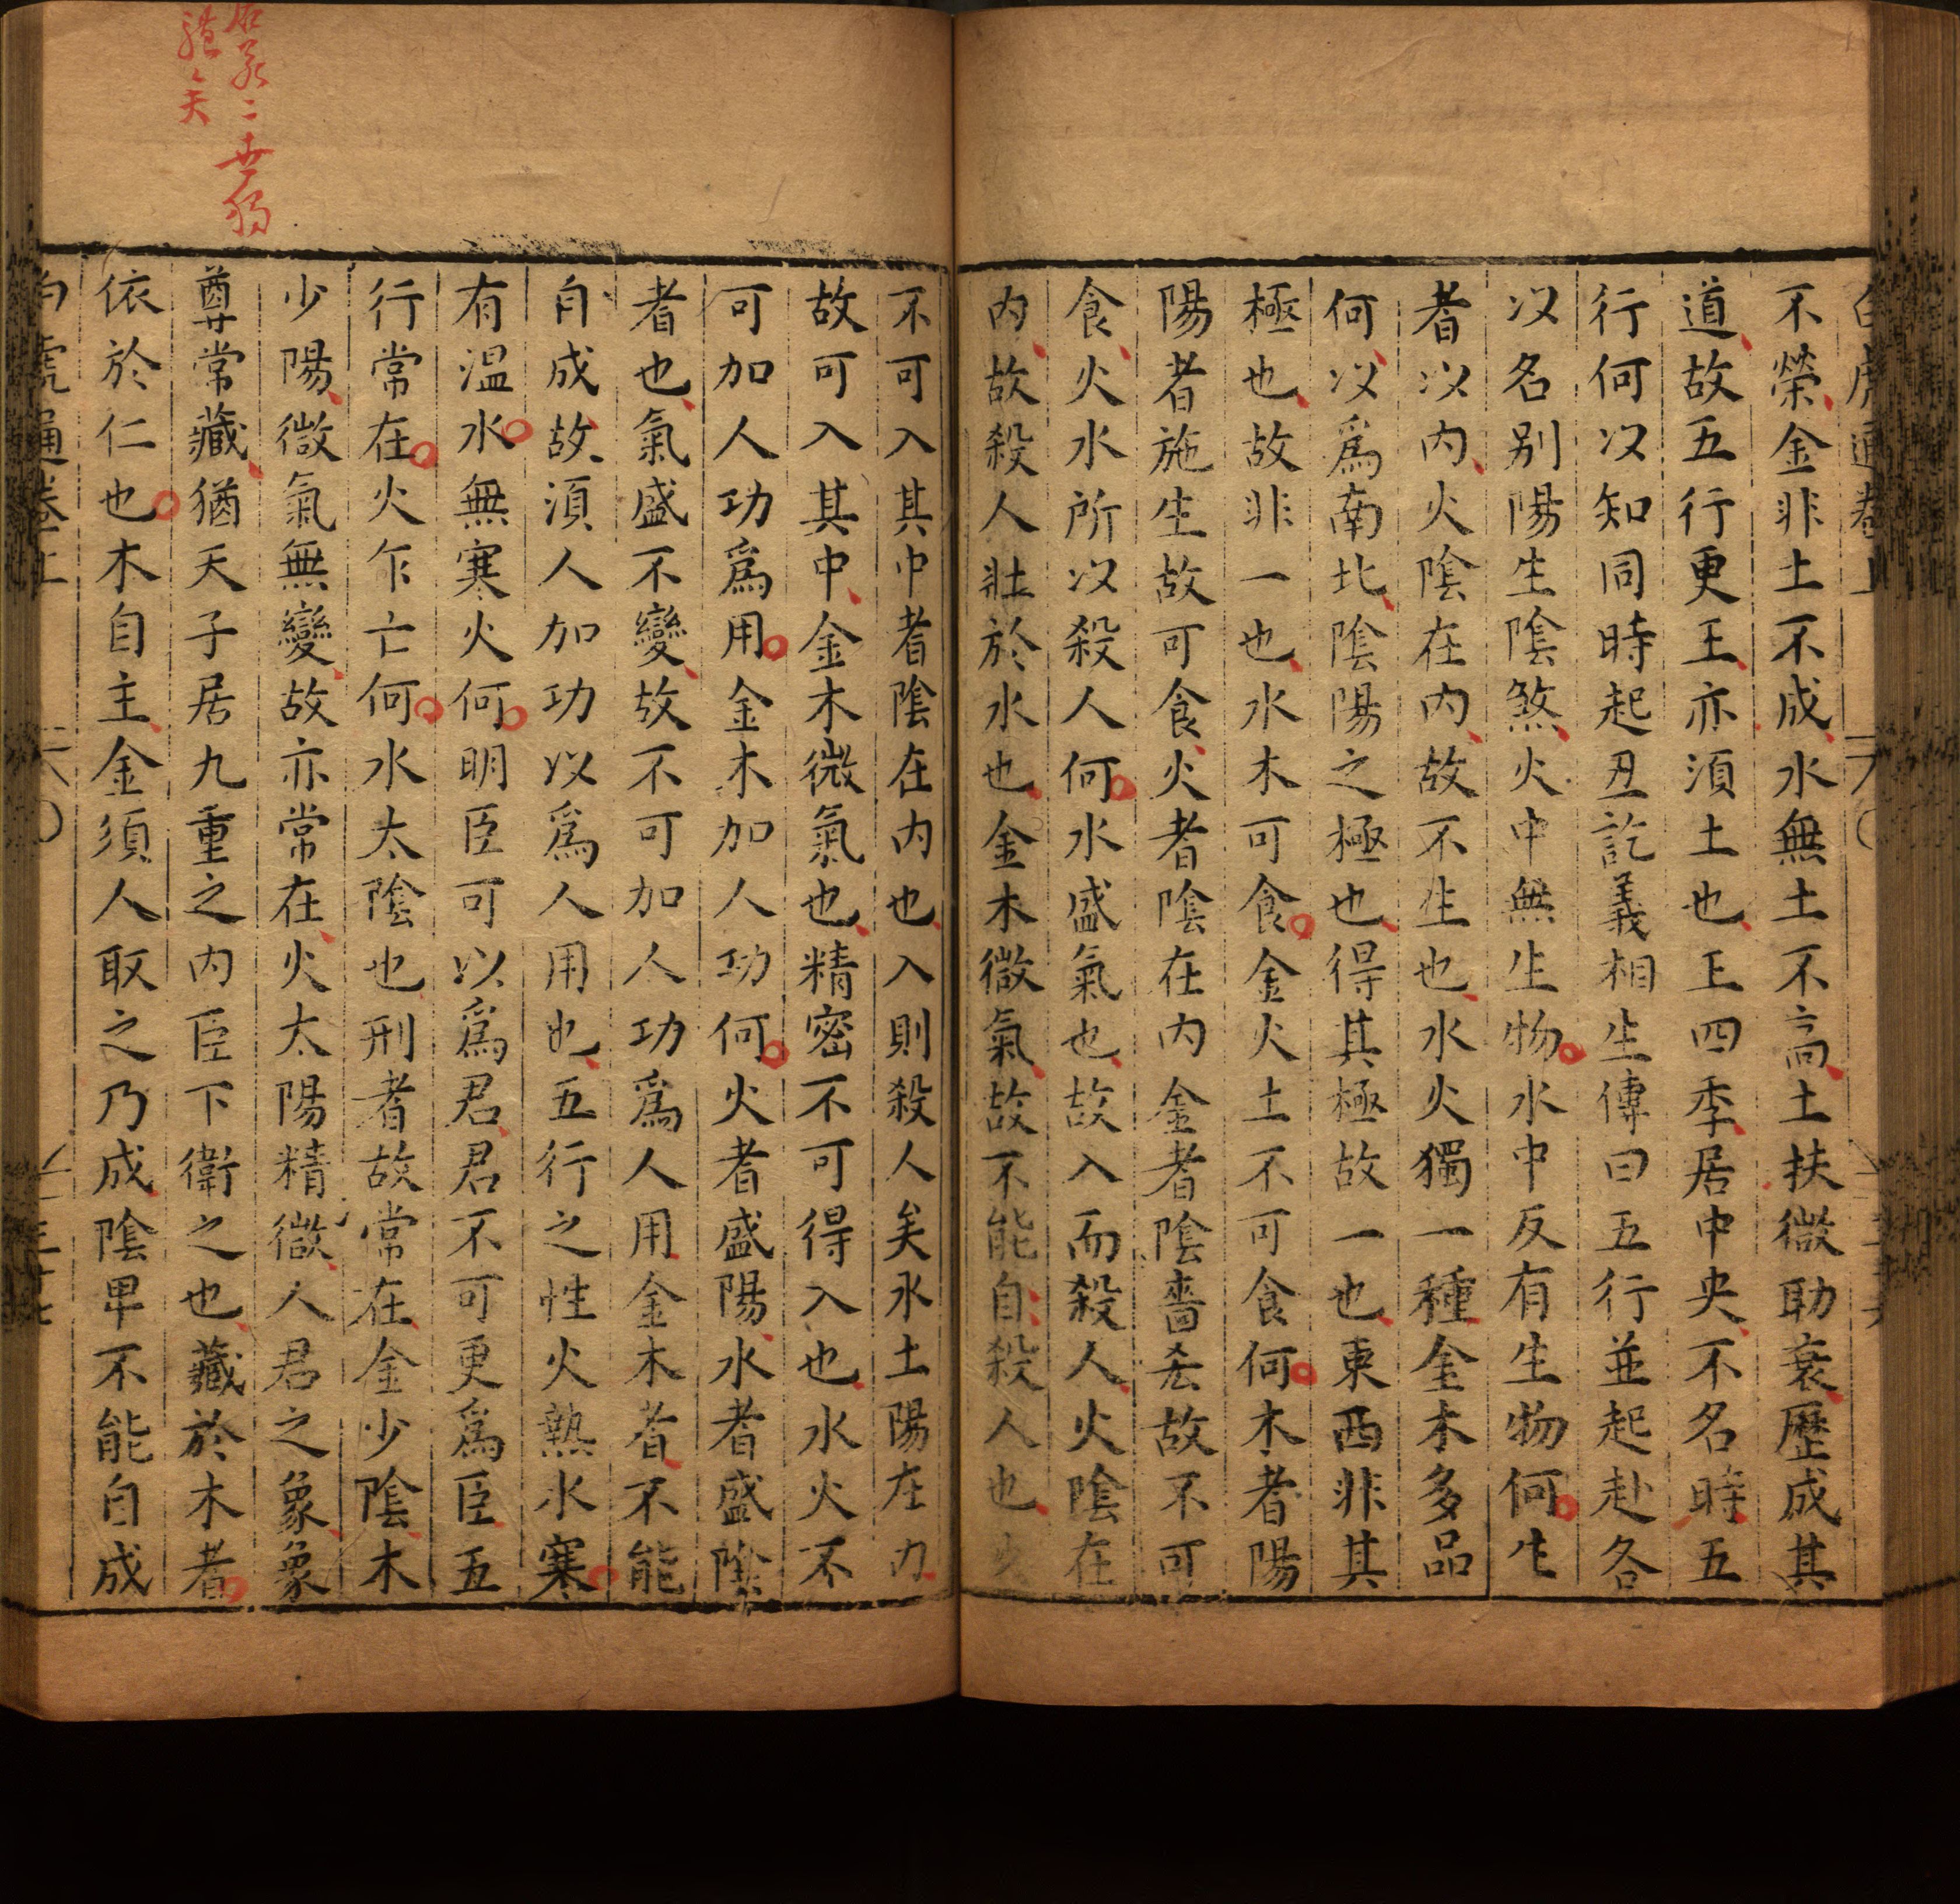 不榮金非土不成水無土不高土扶微助衰歷成其
道故五行更王亦須土也王四季居中央不名時五
行何以知同時起丑訖義相生傳曰五行並起赴各
以名別陽生陰煞火中無生物水中反有生物何生
者以內火陰在內故不生也水火獨一種金木多品
何以爲南北陰陽之極也得其極故一也東西非其
極也故非一也水木可食金火土不可食何木者陽
陽者施生故可食火者陰在內金者陰嗇吝故不可
食火水所以殺人何水盛氣也故入而殺人火陰在
內故殺人壯於水也金木微氣故不能自殺人也火
不可入其中者陰在內也入則殺人矣水土陽在內
故可入其中金木微氣也精密不可得入也水火不
可加人功爲用金木加人功何火者盛陽水者盛陰
者也氣盛不變故不可加人功爲人用金木者不能
自成故須人加功以爲人用也五行之性火熱水寒
有溫水無寒火何明臣可以爲君君不可更爲臣五
行常在火乍亡何水太陰也刑者故常在金少陰木
少陽微氣無變故亦常在火太陽精微人君之象象
尊常藏猶天子居九重之內臣下衛之也藏於木者
依於仁也木自主金須人取之乃成陰卑不能自成
白虎通卷上